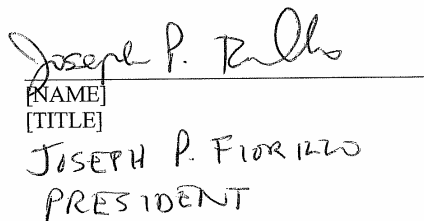 Joseph P.
[NAME]
[TITLE]
JOSEPH P. FIORILLO
PRESIDENT